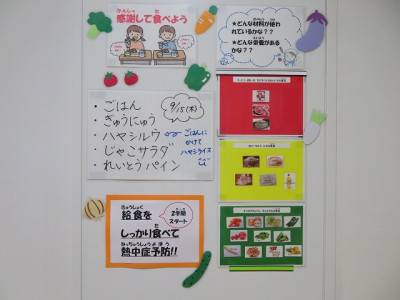 かんしゃ た
感謝して食べよう
★どんな材料が使わ
れているかな??
★どんな栄養がある
かな??
9/15(木)
・ごはん
・ぎゅうにゅう
・ハヤシルウ
・じゃこサラダ
・れいとうパイン
ごはんに
かけて
ハヤシライス
きゅうしょく
給食を
2学期
スタート
しっかり食べて
ねっちゅうしょうよぼう
熱中症予防!!